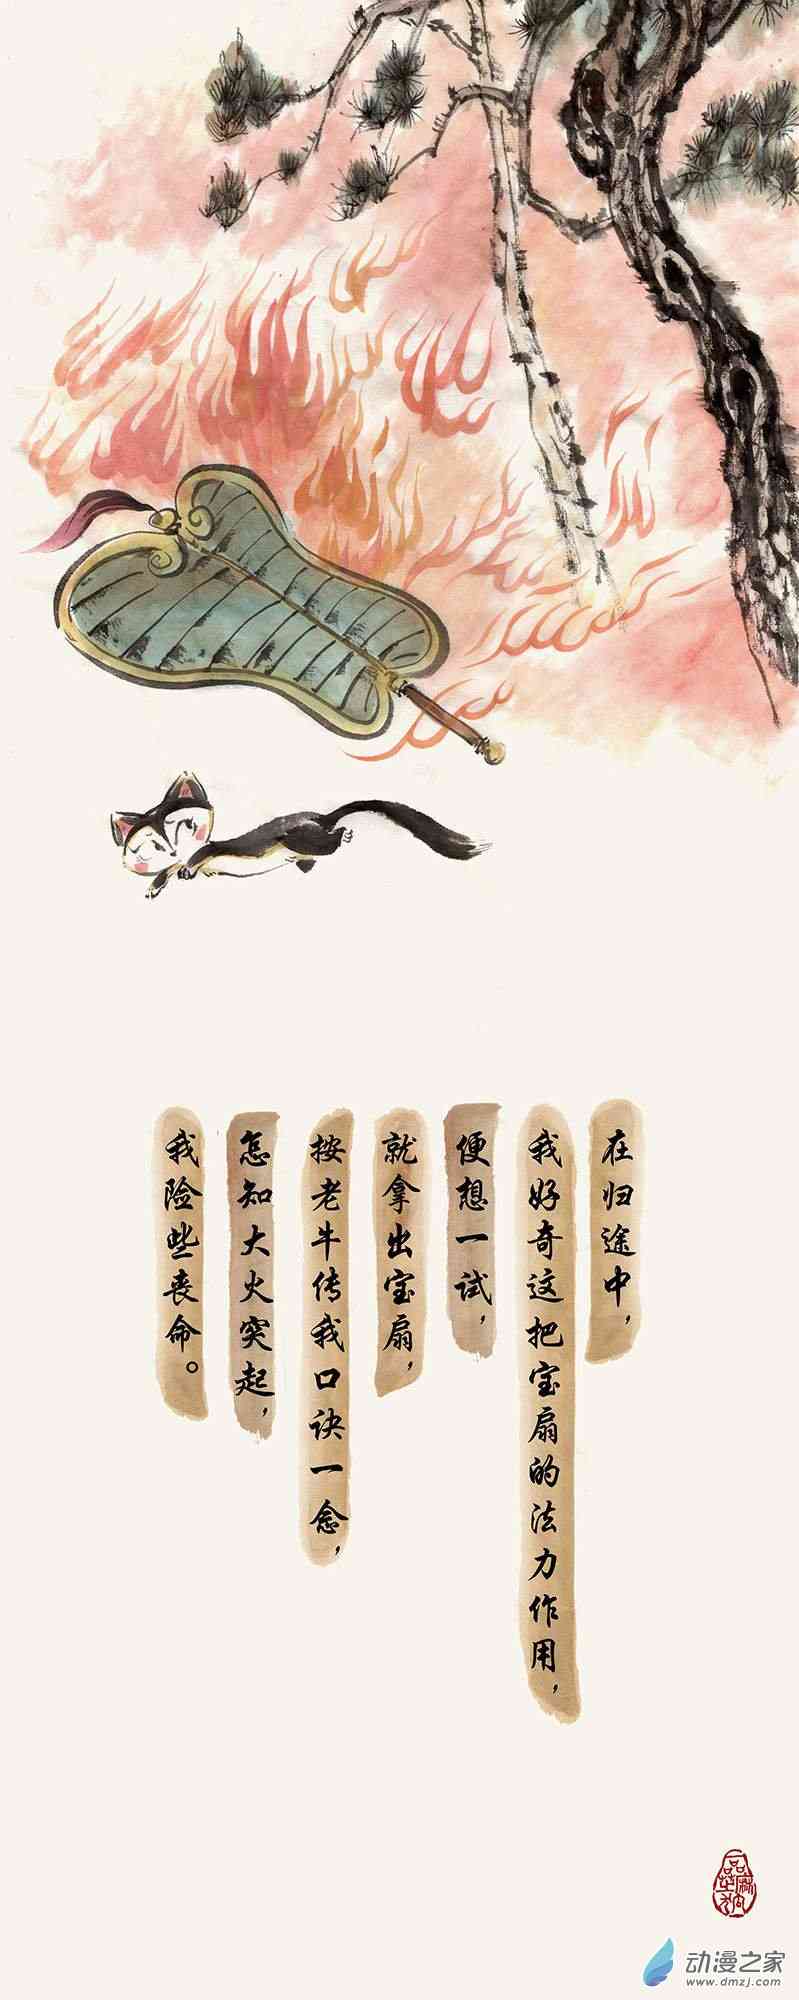 在归途中，
我好奇这把宝扇的法力作用，
便想一试，
就拿出宝扇，
按老牛传我口诀一念，
怎知大火突起，
我险些丧命。
动漫之家
www.dmzj.com